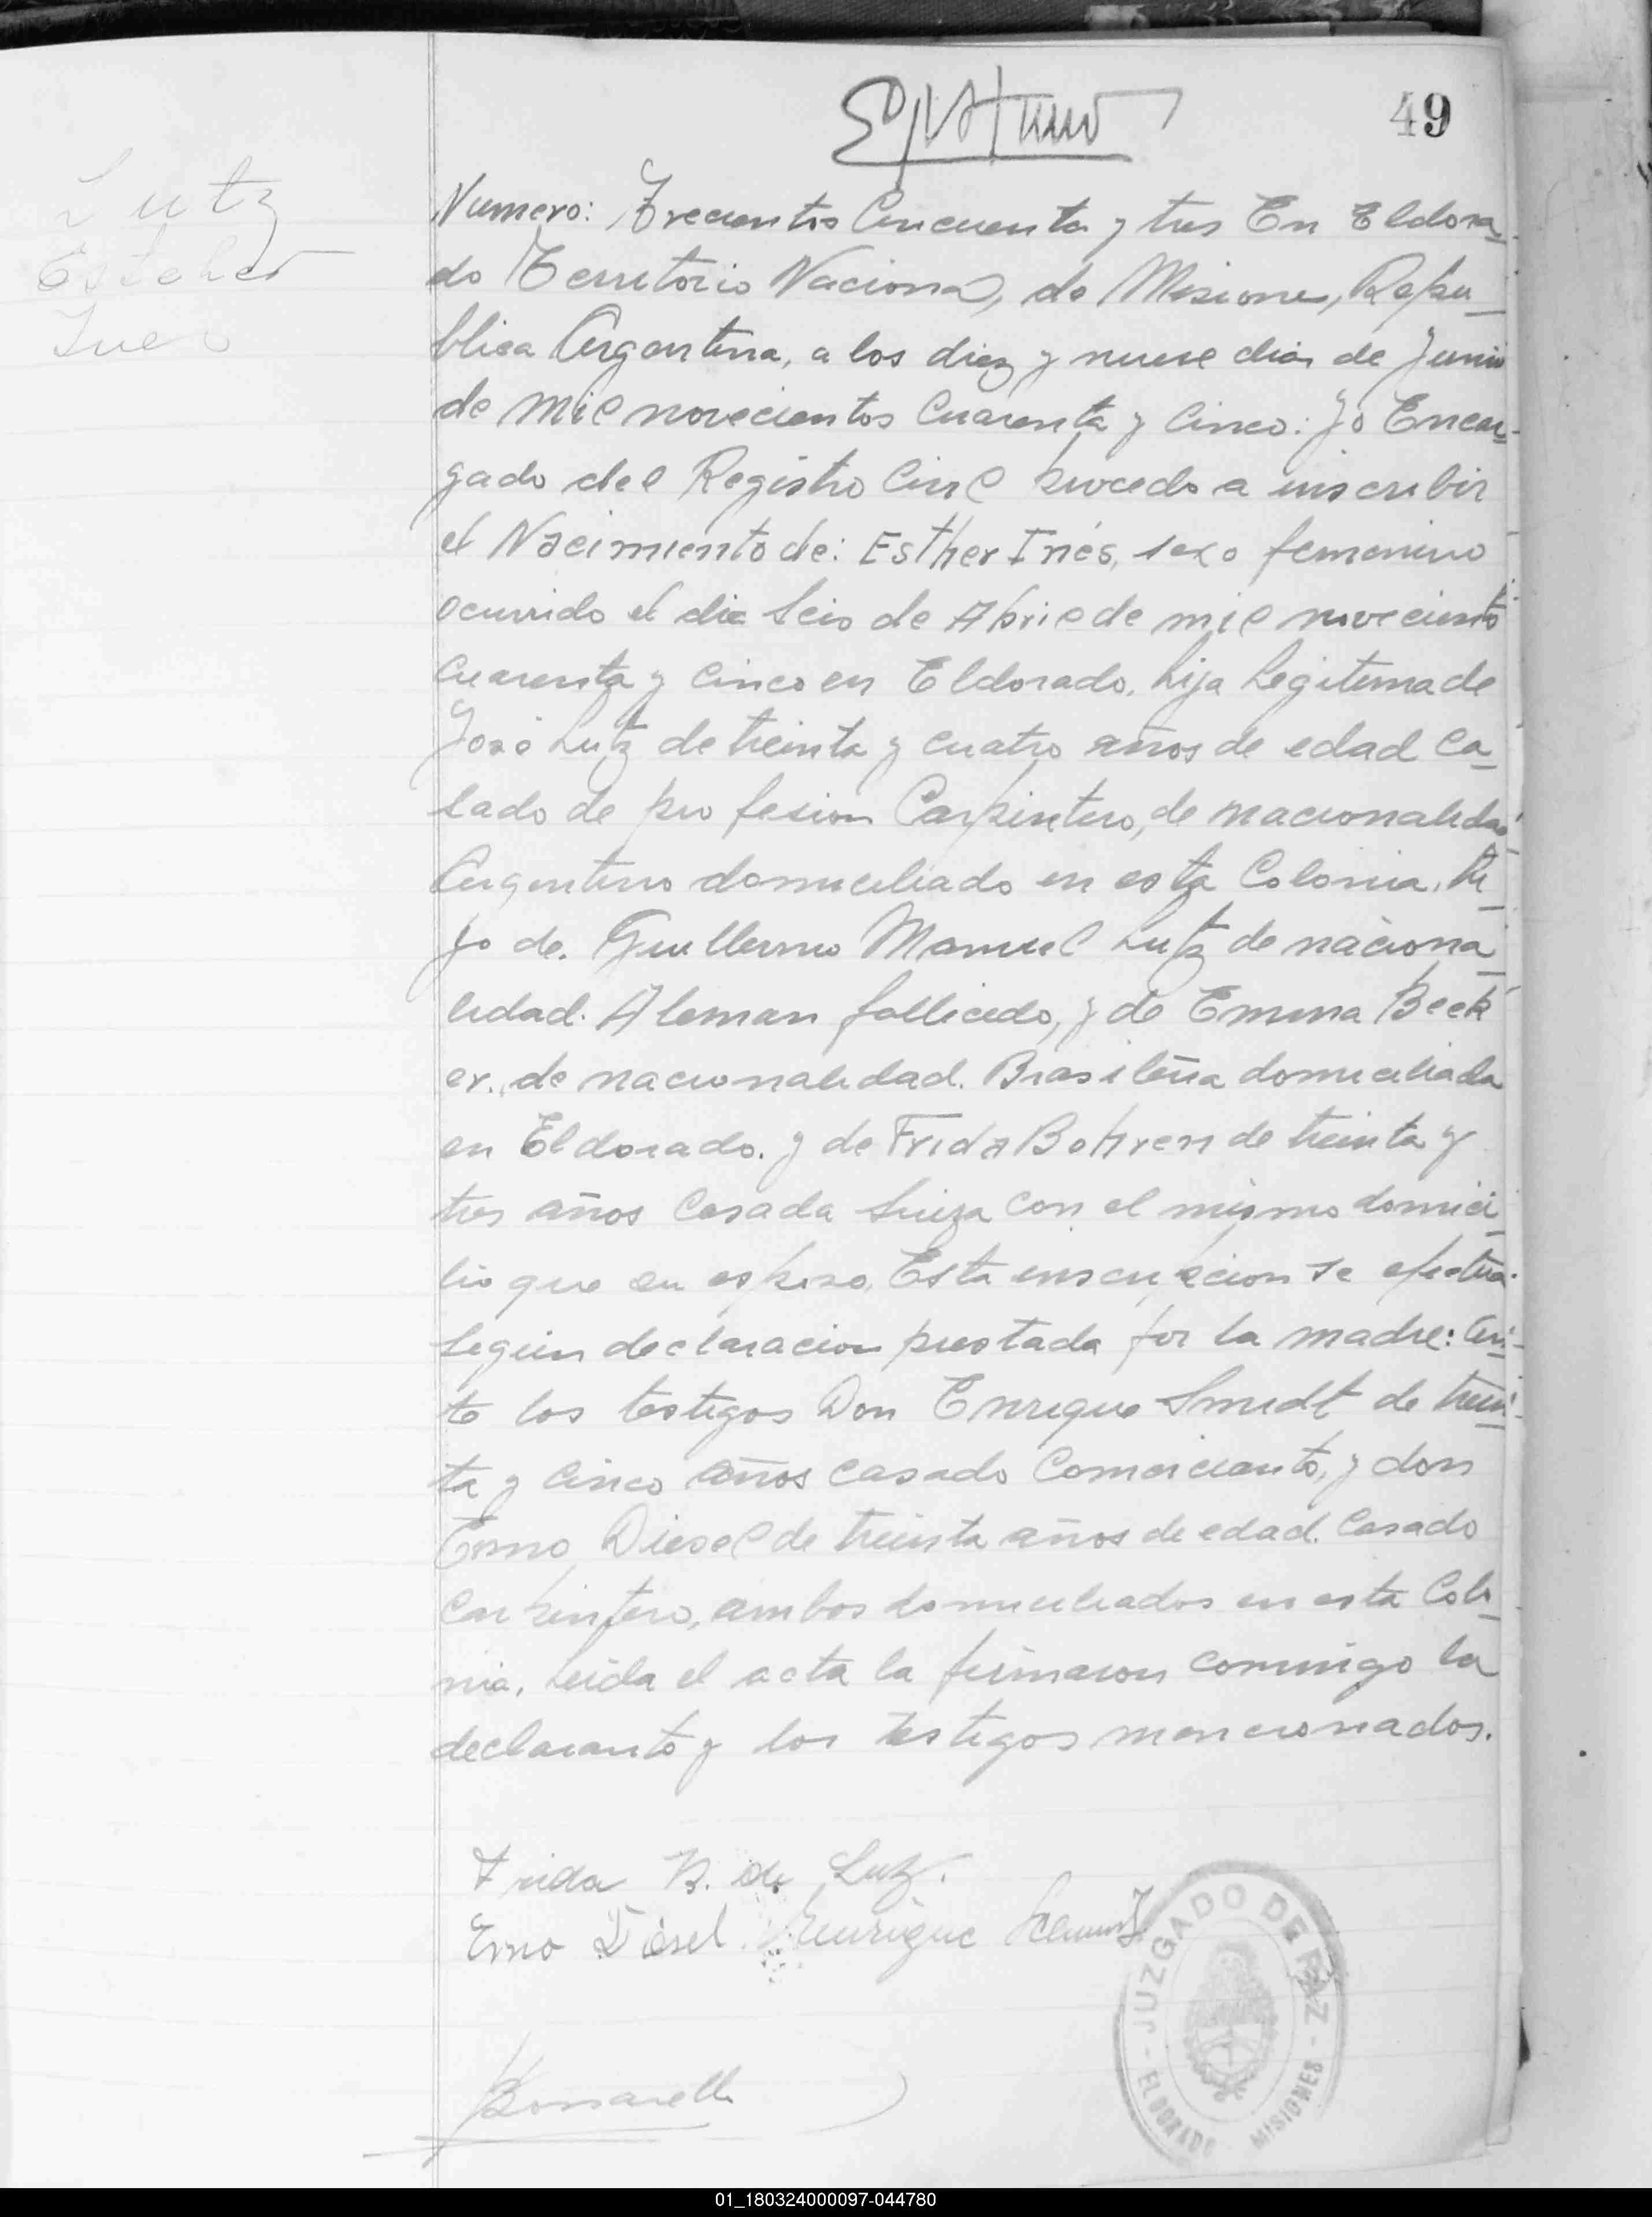 49
Lutz
Esteher
Ines
Numero: Trecientos Cincuenta y tres En Eldora-
do Territorio Nacional, de Misiones, Repu-
blica Argentina, a los diez y nueve dias de Junio
de mil novecientos Cuarenta y Cinco: Yo Encar-
gado del Registro Civil procedo a inscribir
el Nacimiento de: Esther Inés, sexo femenino
ocurrido el dia Seis de Abril de mil novecientos
Cuarenta y Cinco en Eldorado. hija Legitima de
José Lutz de treinta y cuatro años de edad Ca-
sado de profesion Carpintero, de nacionalidad
Argentino domiciliado en esta Colonia. Hi-
jo de. Guillermo Manuel Lutz de naciona-
lidad. Aleman fallicido, y de Emma Beck
er. de nacionalidad. Brasileña domiciliada
en Eldorado. y de Frida Bohren de treinta y
tres años Casada Suiza con el mismo domici-
lio que su esposo, Esta inscripcion se efectua
Segun declaracion prestada por la madre: An-
te los testigos Don Enrique Smidt de trein-
ta y Cinco años casado Comerciante, y don
Erno Diesel de treinta años de edad. Casado
Carpintero, ambos domiciliados en esta Colo-
nia, Leida el acta la firmaron conmigo la
declarante y los testigos mencionados.
Frida B. de Luz.
Erno Diesel. Henrique
JUZGADO DE PAZ - ELDORADO MISIONES -
01_180324000097-044780